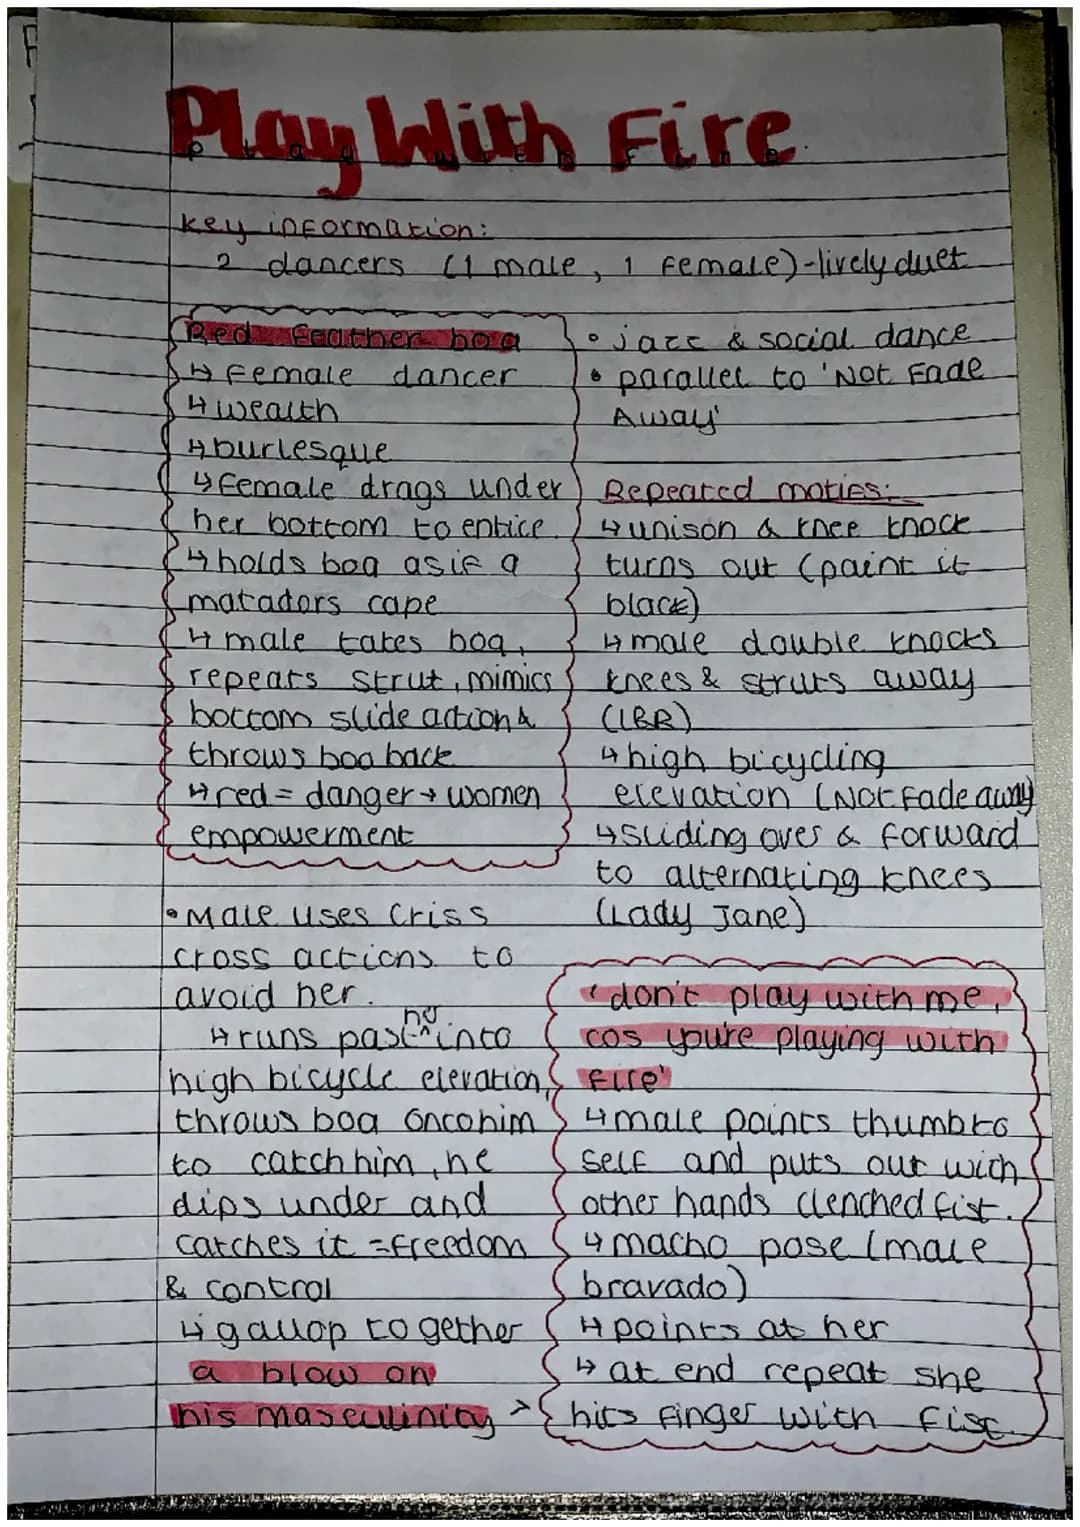 Play With Fire
key information:
2 dancers (1 male, 1 female)-lively duet
Red feather boa
↳ female dancer
↳ wealth
↳ burlesque
↳ female drags under
her bottom to entice.
↳ holds boa as if a
matadors cape
↳ male takes boa,
repeats strut, mimics
bottom slide action &
throws boa back
↳ red = danger → women
empowerment
• Male uses criss
cross actions to
avoid her.
↳ runs past her into
high bicycle elevation,
throws boa onto him
to catch him, he
dips under and
catches it = freedom
& control
↳ gallop together
a blow on
his masculinity >
• jazz & social dance
• parallel to 'Not Fade
Away'
Repeated motifs:
↳ unison & knee knock
turns out (paint it
black)
↳ male double knocks
knees & struts away
(LBR)
↳ high bicycling
elevation (Not Fade away)
↳ sliding over & forward
to alternating knees
(Lady Jane)
'don't play with me,
cos you're playing with
fire'
↳ male points thumb to
self and puts out with
other hands clenched fist.
↳ macho pose (male
bravado)
↳ points at her
↳ at end repeat she
hits finger with fist.